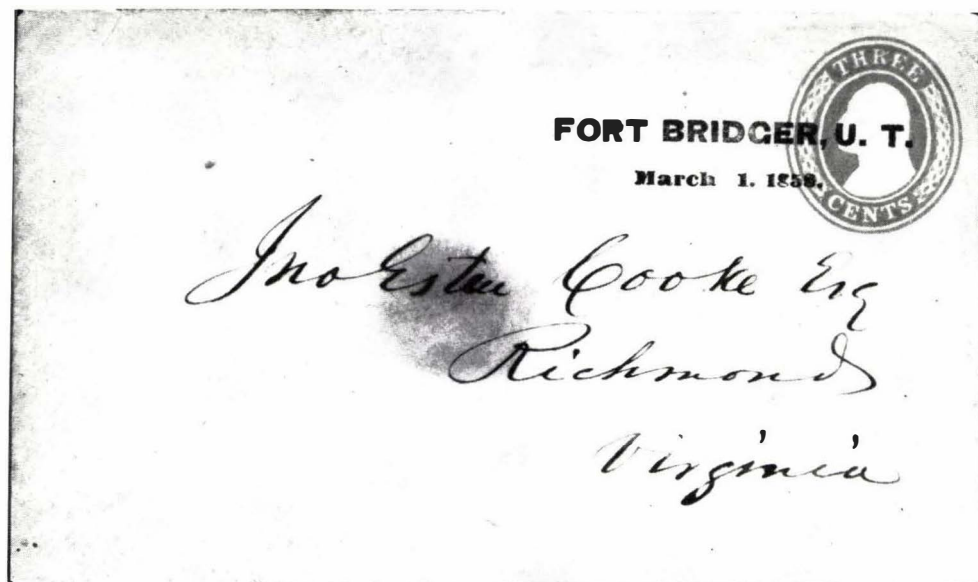 THREE
CENTS
FORT BRIDGER, U. T.
March 1. 1858.
Jno Esten Cooke Esq
Richmond
Virginia